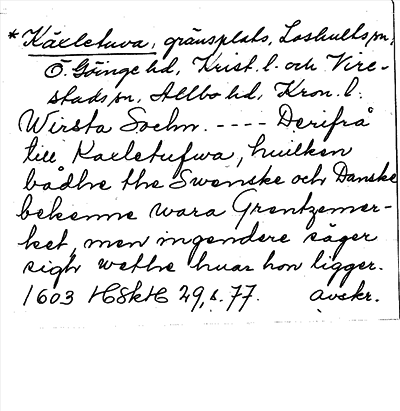 * Käxletuva, gränsplats, Loshults sn,
Ö. Göinge hd, Krist. l. och Vire-
stads sn, Allbo hd, Kron. l.
Wirsta Sochn. ---- Derifrå
till Kaxletufwa, huilken
bådhe the Swenske och Danske
bekenne wara Grentzemer-
ket, men ingendere säger
sigh wethe huar hon ligger.
1603 HSkH 29, s. 77. avskr.